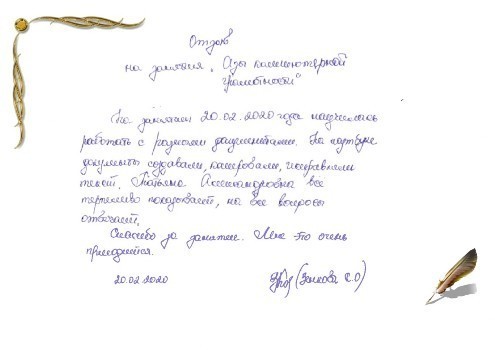 Отзыв
на занятия „Азы компьютерной
грамотности"
На занятии 20.02.2020 года научилась
работать с разными документами. На ноутбуке
документы создавали, копировали, исправляли
текст. Татьяна Александровна все
терпеливо показывает, на все вопросы
отвечает.
Спасибо за занятия. Мне это очень
пригодится.
20.02.2020
С.О)